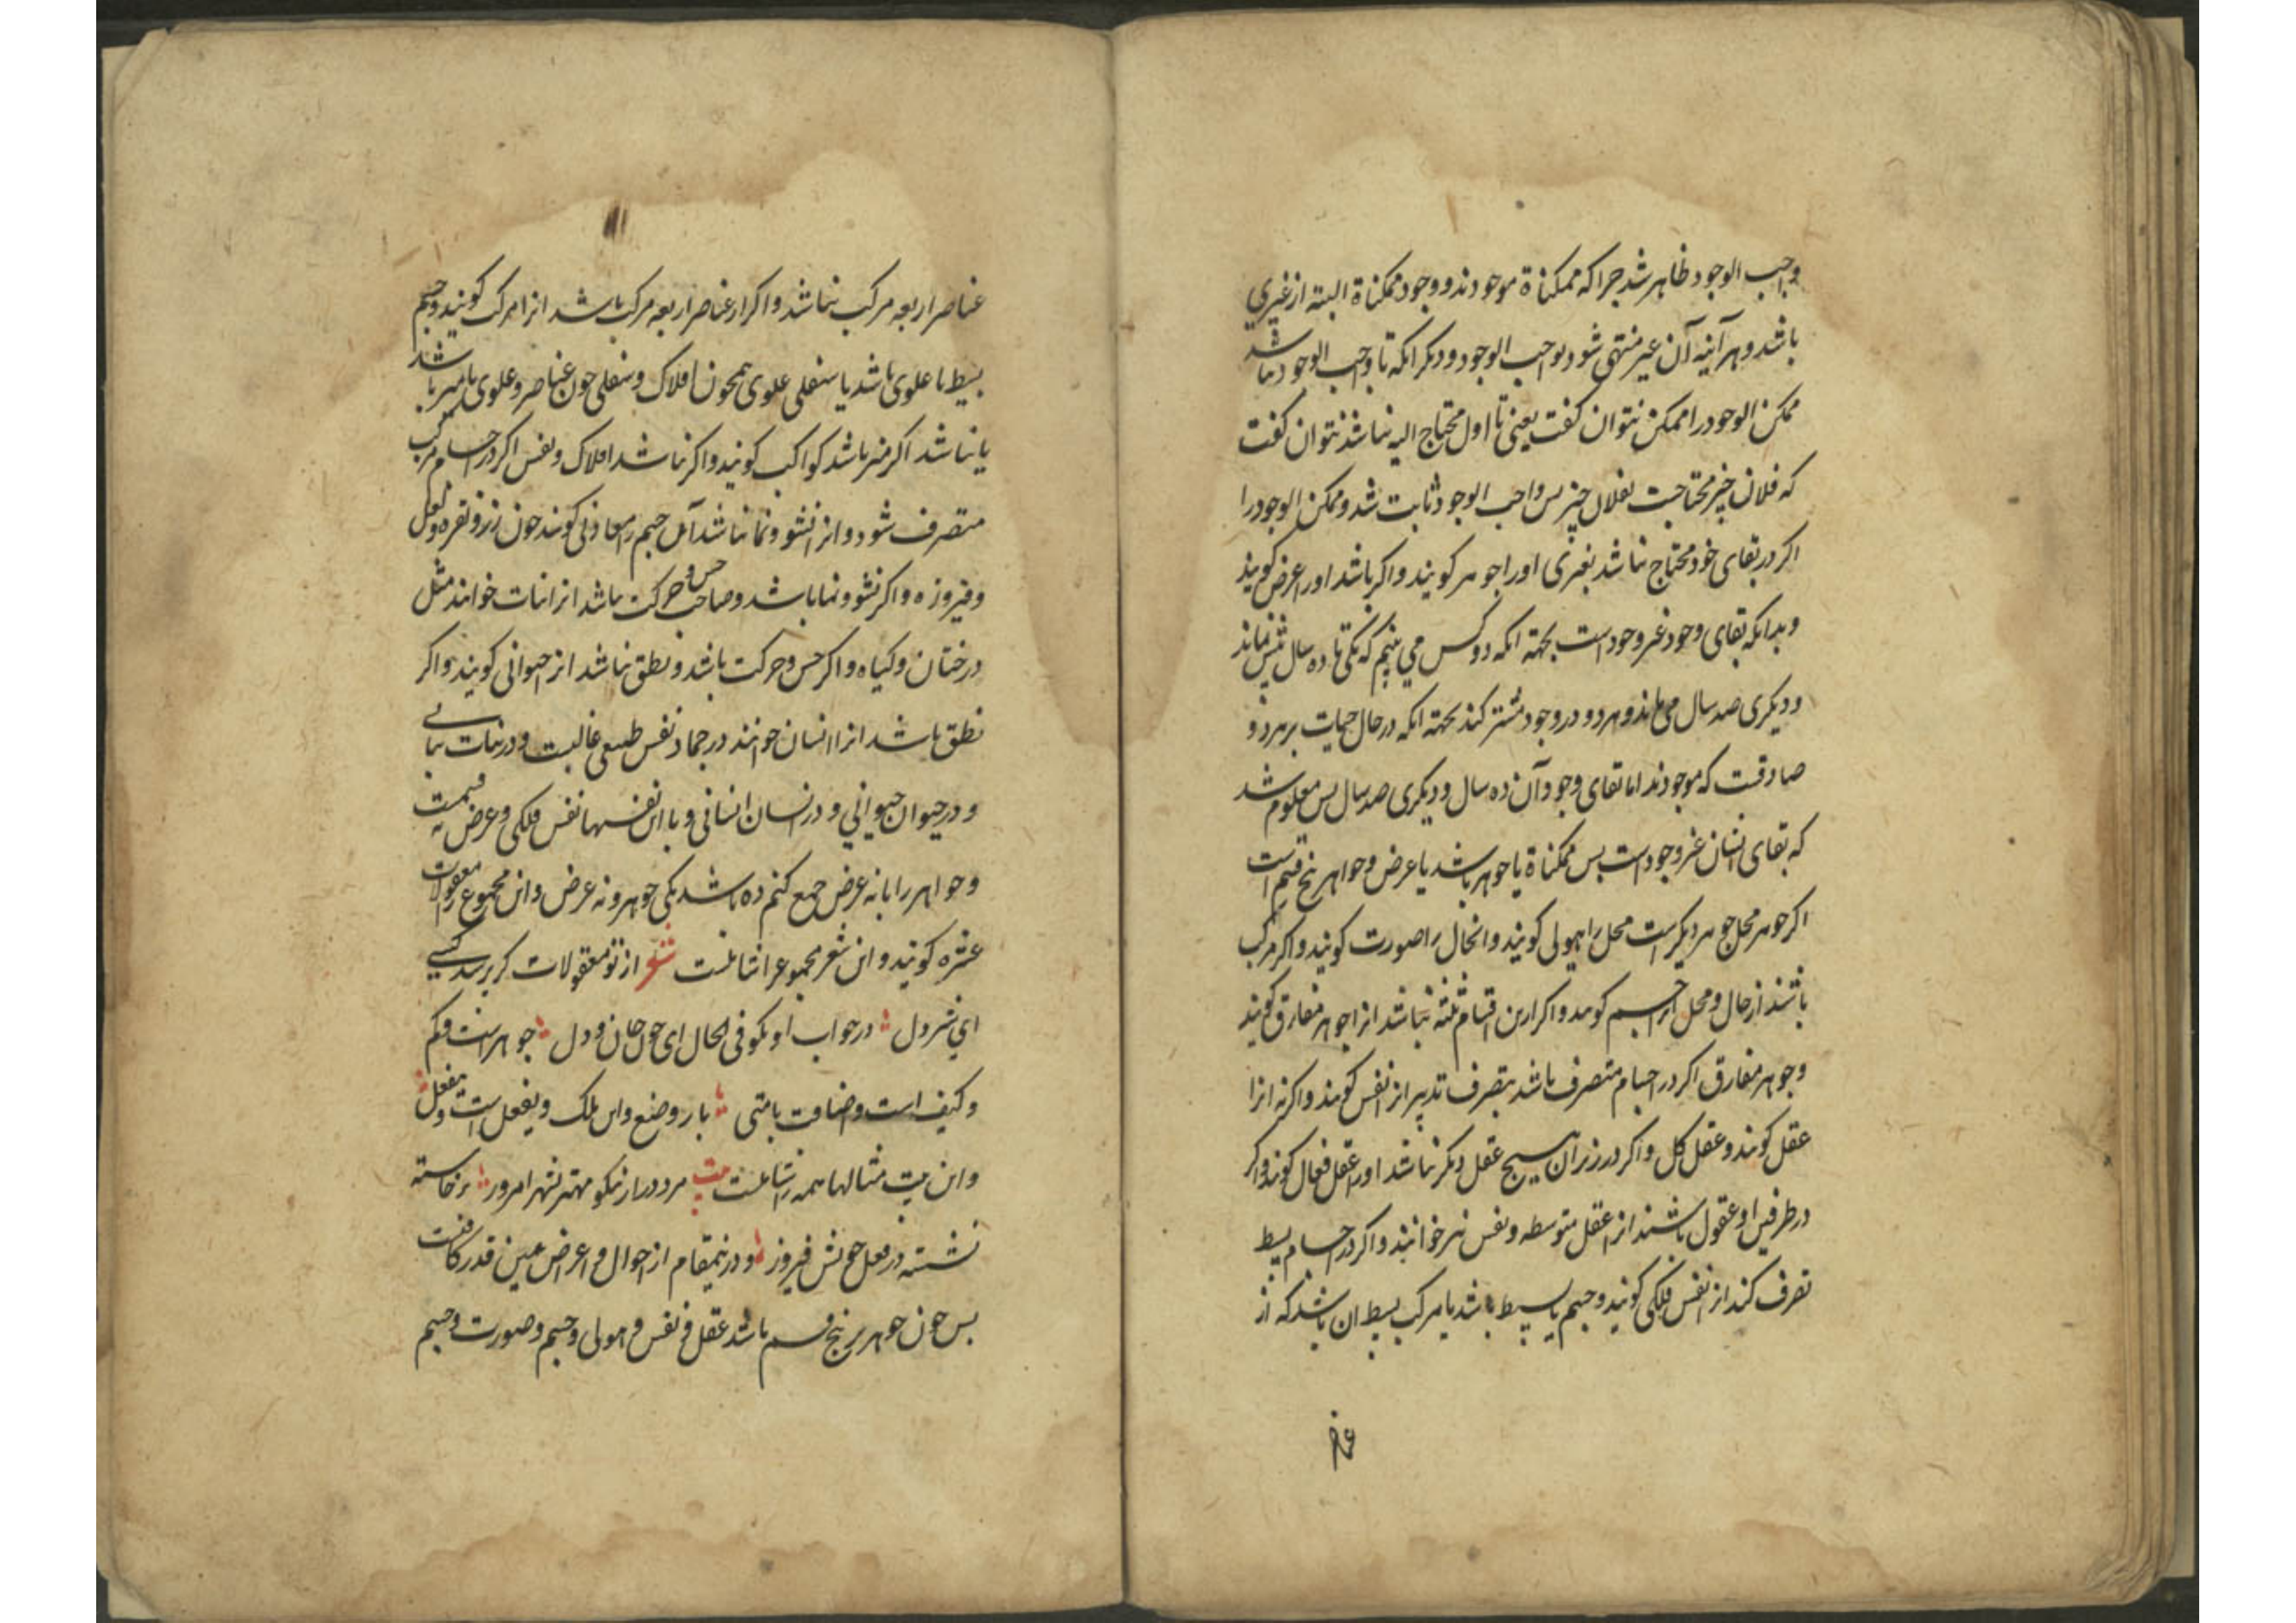 واجب الوجود ظاهر شد جرا که ممکناة موجودند و وجود ممکناة البته از غیری
باشد و هر آینه آن غیر منتهی شود بواجب الوجود و دیکر انکه تا واجب الوجود نباشد
ممکن الوجود را ممکن نتوان کفت یعنی تا اول محتاج الیه نباشد نتوان کفت
که فلان چیز محتاجست بفلان چیز بس واجب الوجود ثابت شد و ممکن الوجود را
اکر در بقای خود محتاج نباشد بغیری او را جوهر کویند و اکر باشد او را عرض کویند
و بدانکه بقای وجود غیر وجود است بجهة انکه دو کس می بینم که یکی تا ده سال بیش نماند
و دیکری صد سال می ماند و هر دو در وجود مشترکند بجهة انکه در حال حیات بر هر دو
صادقست که موجودند اما بقای وجود آن ده سال و دیکری صد سال بس معلوم شد
که بقای انسان غیر وجود است بس ممکناة یا جوهر باشد یا عرض و جواهر بنج قسم است
اکر جوهر محل جوهر دیکر است محل را هیولی کویند و انحال را صورت کویند و اکر مرکب
باشند از حال و محل انرا جسم کویند و اکر ازین اقسام ثلثه نباشد انرا جوهر مفارق کویند
و جوهر مفارق اکر در اجسام متصرف باشد بتصرف تدبیر انرا نفس کویند و اکر نه انرا
عقل کویند و عقل کل و اکر در زیر آن هیچ عقل دیکر نباشد او را عقل فعال کویند و اکر
در طرفین او عقول باشند انرا عقل متوسطه و نفس نیز خوانند و اکر در اجسام بسیط
تصرف کند انرا نفس فلکی کویند و جسم یا بسیط باشد یا مرکب بسیط ان باشد که از
عناصر اربعه مرکب نباشد و اکر از عناصر اربعه مرکب باشد انرا مرکب کویند و جسم
بسیط یا علوی باشد یا سفلی علوی همجون افلاک و سفلی جون عناصر و علوی یا منیر باشد
یا نباشد اکر منیر باشد کواکب کویند و اکر نباشد افلاک و نفس اکر در اجسام مرکب
متصرف شود و انرا نشو و نما نباشد آن جسم را معادنی کویند جون زر و نقره و لعل
و فیروزه و اکر نشو و نما باشد و صاحب حس و حرکت باشد انرا نبات خوانند مثل
درختان و کیاه و اکر حس و حرکت باشد و نطق نباشد انرا حیوانی کویند و اکر
نطق باشد انرا انسان خوانند در جماد نفس طبیعی غالبست و در نبات نباتی
و در حیوان حیوانی و در انسان انسانی و با این نفسها نفس فلکی و عرض نه قسمت
و جواهر را با نه عرض جمع کنم ده باشد یکی جوهر و نه عرض و این مجموع را مقولات
عشره کویند و این شعر مجموع را شاملست شعر از تو مقولات کر برسد کسی
ای شیر دل در جواب او بکو فی الحال ای جون جان و دل جوهرست و کم
و کیف است و اضافت با متی بار وضع و این ملک و یفعل است و ینفعل
و این بیت مثالها همه را شاملست بیت مردی دراز نیکو مهتر بشهر امروز برخاسته
نشسته در فعل خویش فیروز و درینمقام از احوال و اعراض همین قدر کافیست
بس جون جوهر بر بنج قسم باشد عقل و نفس و هیولی و جسم و صورت و جسم